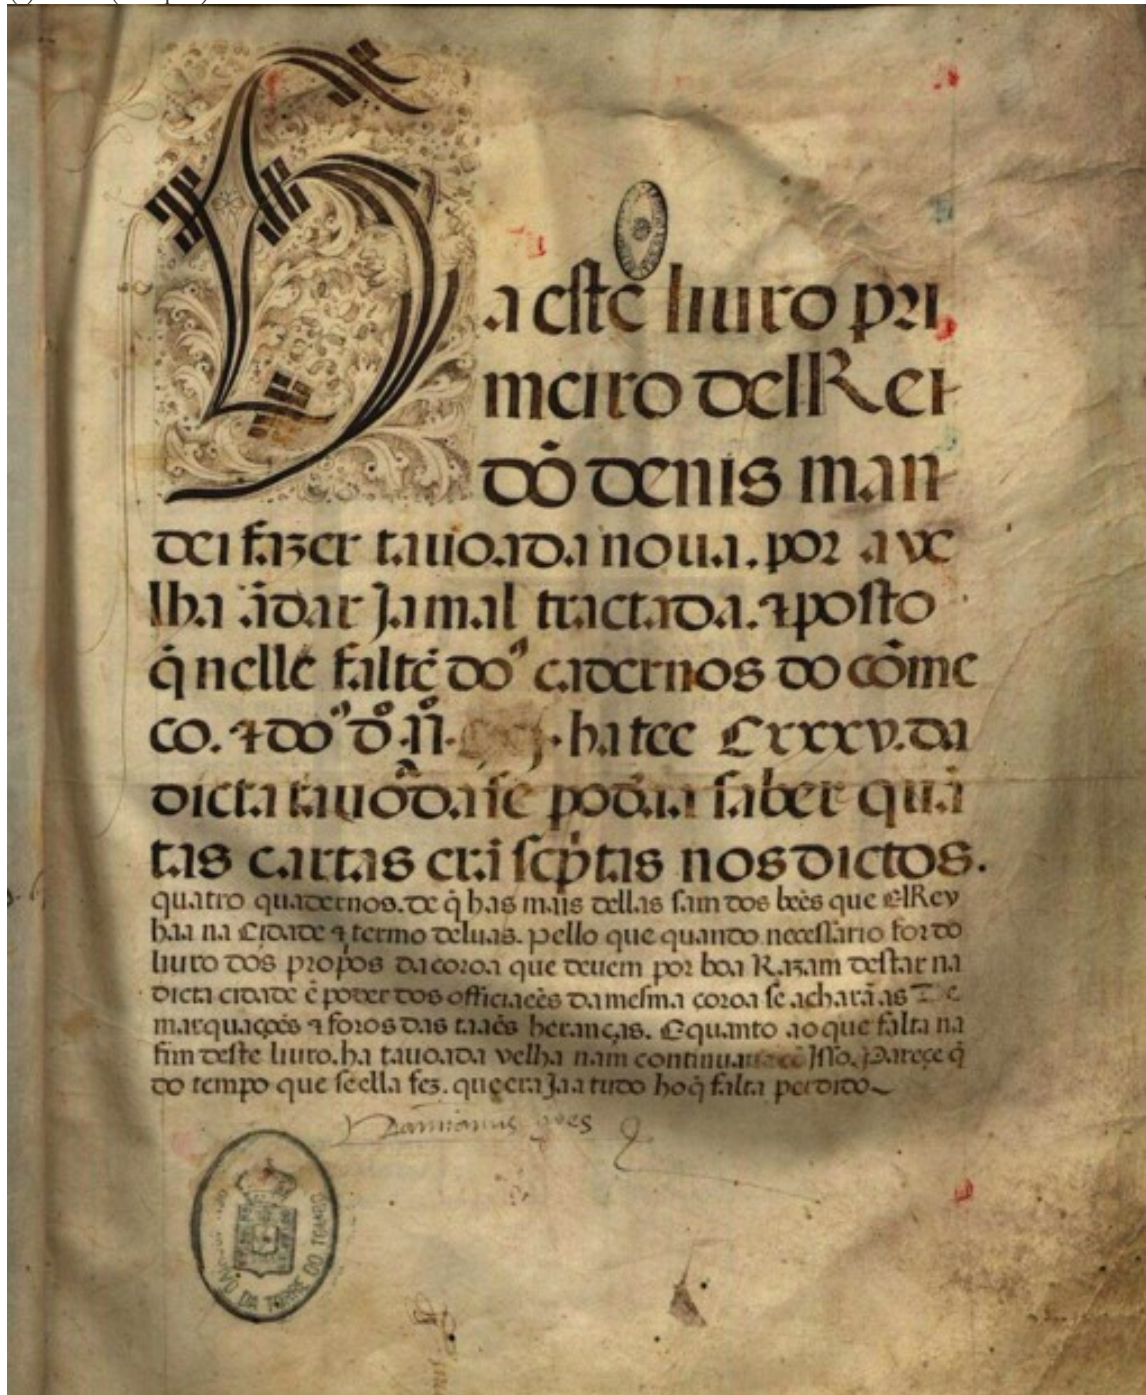 Ha este liuro pri
meiro delRei
dō denis man
dei fazer tauoada noua. por a ve
lha ādar Ja mal tractada. ⁊ posto
q̄ nelle faltē doˢ cadernos do cōme
co. ⁊ doˢ dº nº. ha tee Crxxv. da
dicta tauoᵃda se podia saber quā
tas cartas erā scp̄tas nos dictos.
quatro quadernos. de q̄ has mais dellas sam dos beēs que elRey
haa na cidade ⁊ termo deluas. pello que quando necessario for do
liuro dos propos da coroa que deuem por boa Razam destar na
dicta cidade ē poder dos officiaes da mesma coroa se acharā as De
marquações ⁊ foros das taaes heranças. E quanto ao que falta na
fim deste liuro. ha tauoada velha nam Isso. Pareçe q̄
do tempo que se ella fez. que era Jaa tudo ho q̄ falta perdido
Damianus goes
DA TORRE DO TOMBO